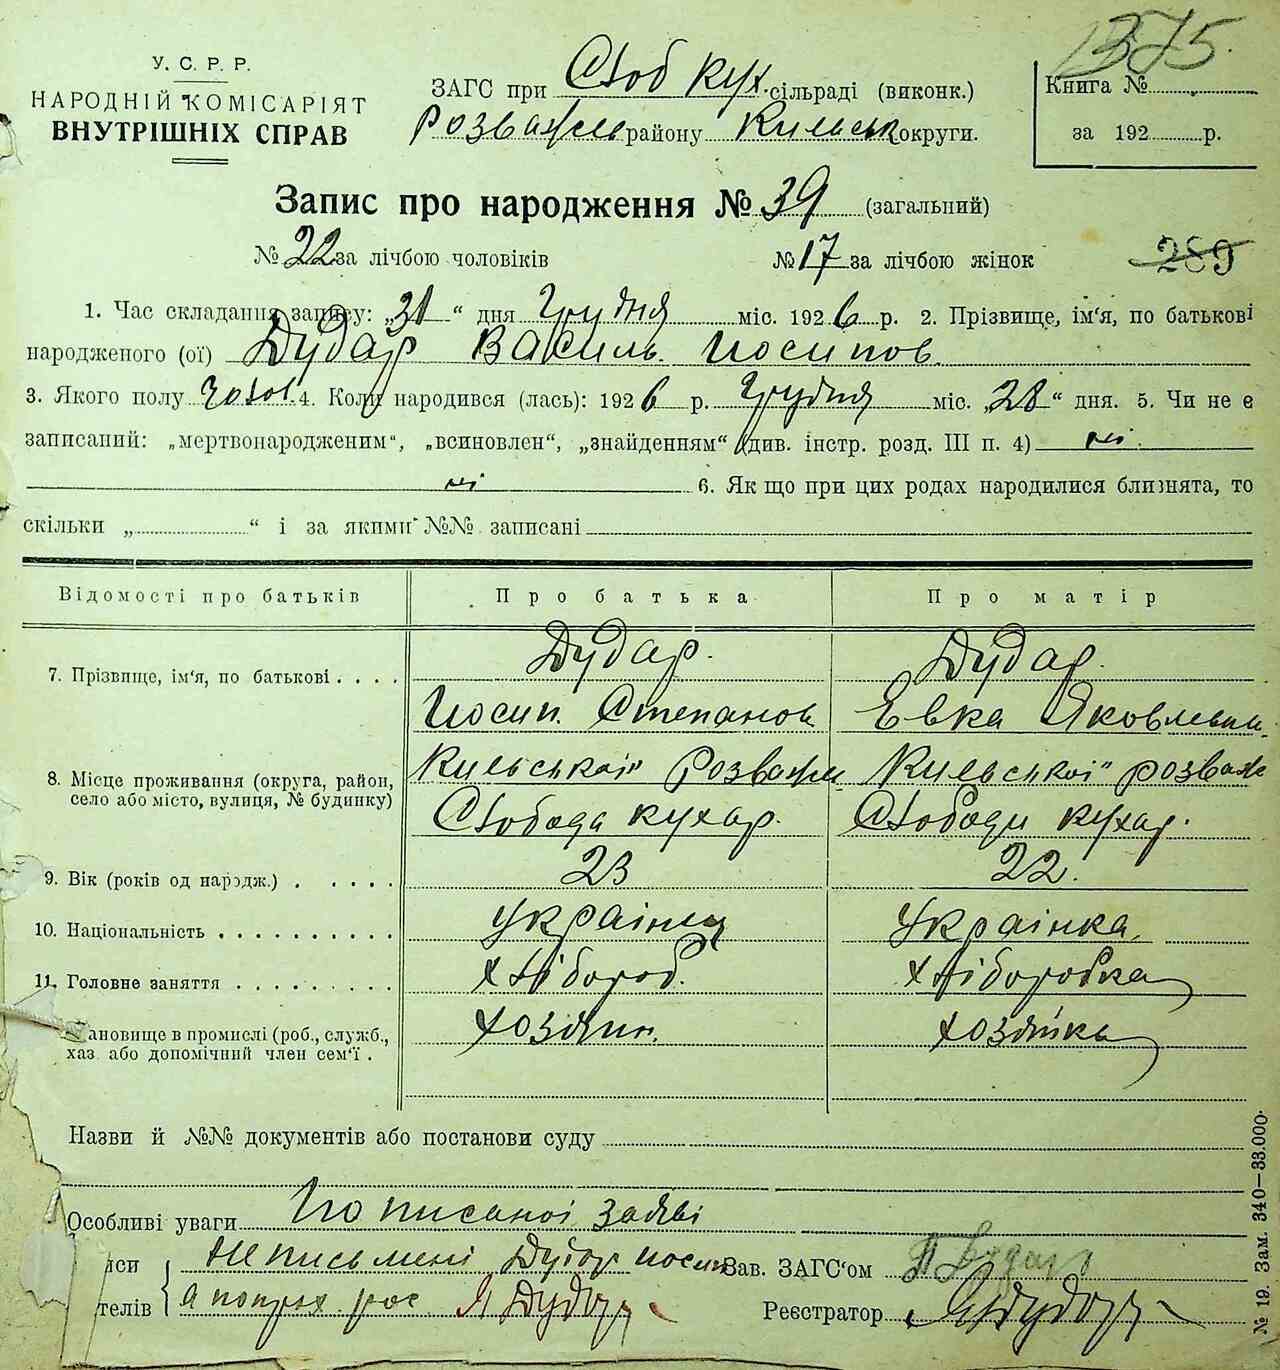 375.
У. С. Р. Р.
НАРОДНІЙ КОМІСАРІЯТ
ВНУТРІШНІХ СПРАВ
ЗАГС при Стоб Кух. сільраді (виконк.)
Розважев району Кильськ округи.
Книга №
за 192 р.
Запис про народження № 39 (загальний)
№ 22 за лічбою чоловіків № 17 за лічбою жінок 289
1. Час складання запису: „31“ дня Грудня міс. 1926 р. 2. Прізвище, ім'я, по батькові
народженого (ої) Дудар Василь Иосипов.
3. Якого полу чолов. 4. Коли народився (лась): 1926 р. Грудня міс. „28“ дня. 5. Чи не є
записаний: „мертвонародженим“, „всиновлен“, „знайденням“ (див. інстр. розд. III п. 4) ні.
ні 6. Як що при цих родах народилися близнята, то
скільки „ “ і за якими №№ записані
Відомості про батьків Про батька Про матір
Дудар. Дудар.
7. Прізвище, ім'я, по батькові
Иосип Степанов Евка Яковлевн.
Кильської Розважев Кильської розваж
8. Місце проживання (округа, район,
село або місто, вулиця, № будинку)
Стобода кухар. Стободи кухар.
9. Вік (років од народж.) 23 22.
10. Національність Українец Українка
11. Головне заняття хлібороб. хліборобка
ановище в промислі (роб., служб.,
хаз або допомічний член сем'ї.
хозяин. хозяйка
Назви й №№ документів або постанови суду
Особливі уваги По писаної заяві
иси Не письмені Дудар иосип Зав. ЗАГС'ом
телів а попрох. рос Я Дудар Реєстратор Я Дудар
№ 19. Зам. 340—33.000.